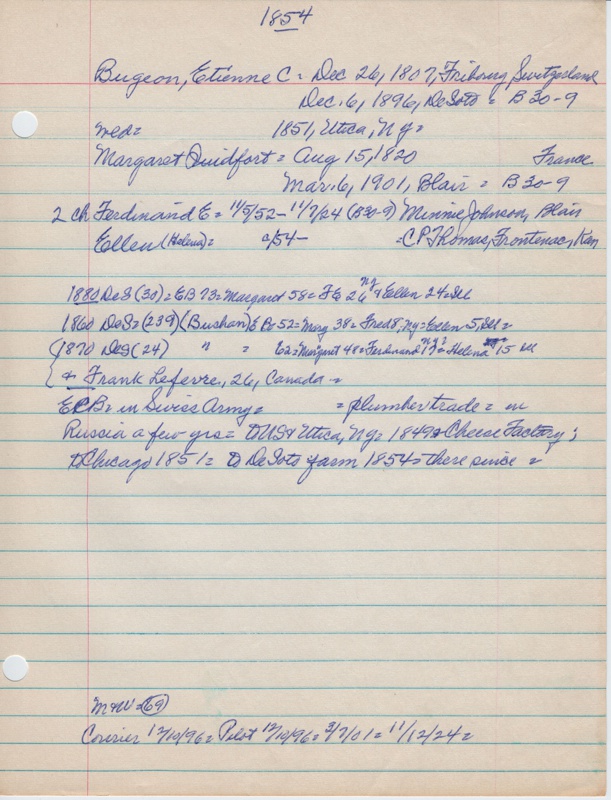 1854
Bugeon, Etienne C = Dec 26, 1807, Fribourg, Switzerland
Dec. 6, 1896, DeSoto = B 30-9
med= 1851, Utica, Ny=
Margaret Quidfort = Aug 15, 1820 France
Mar. 6, 1901, Blair = B 30-9
2 ch Ferdinand E = 11/5/52 - 11/7/24 (B30-9) Minnie Johnson, Blair
Ellen (Helena) = a/54- = C P Thomas, Frontenac, Kan
1880 DeS (30) = EB 73 = Margaret 58 = FE 26 Ny & Ellen 24 = Ill
1860 DeS = (239) (Bushan) E Be 52 = Marg 38 = Fred 8, Ny = Ellen 5, Ill =
1870 DeS (24) " " 62 = Margaret 48 = Ferdinand 17 Ny = Helena 15 Ill
& Frank Lefevre, 26, Canada =
ECB = in Swiss Army = = plumber trade = in
Russia a few yrs = to US & Utica, Ny = 1849 = Cheese Factory;
to Chicago 1851 = to DeSoto farm 1854 = there since =
M&W = (69)
Courier 12/10/96 = Pilot 12/10/96 = 3/7/01 = 11/12/24 =